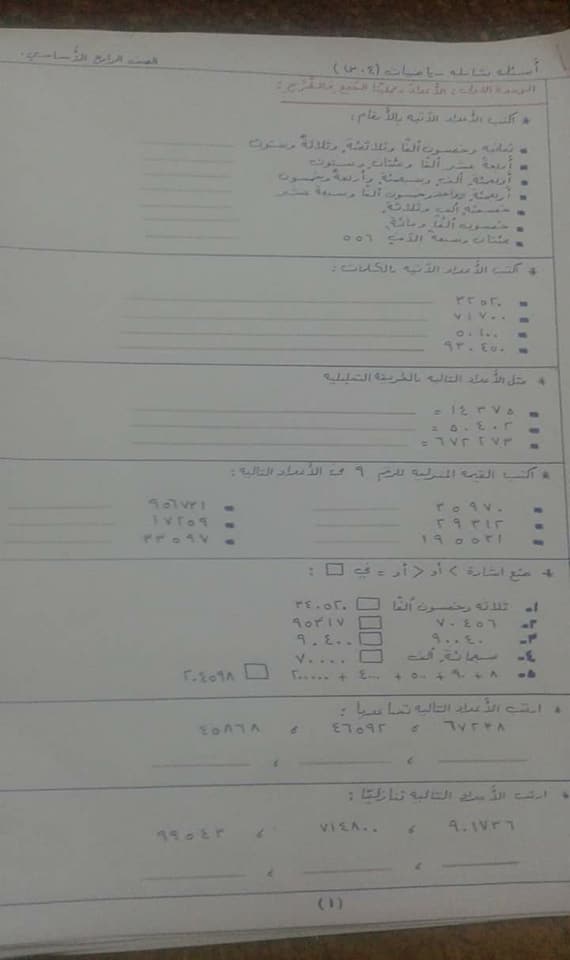 أسئلة شاملة رياضيات (س.٤) الصف الرابع الأساسي.
الوحدة الأولى: الأعداد وعمليتا الجمع والطرح:
* اكتب الأعداد الآتية بالأرقام:
وخمسون ألفًا وثلاثمئة وثلاثة وستون
أربعة عشر ألفًا ومئتان وستون
أربعمئة ألف وسبعمئة وأربعة وخمسون
أربعمئة وخمسون ألفًا وسبعة عشر
خمسمئة ألف وثلاثة
خمسون ألفًا ومائة
مئتان وسبعة آلاف ٥٥٦
* اكتب الأعداد الآتية بالكلمات:
٣٢٥٢٠
٧١٧٠٠
٥٠١٠٠
٩٣٠٤٥٠
* مثل الأعداد التالية بالطريقة التحليلية
١٤٣٧٥ =
٥٠٤٠٢ =
٦٧٢٢٧٣ =
* اكتب القيمة المنزلية للرقم ٩ في الأعداد التالية:
٣٥٩٧٠ ٩٥٦٧٣١
٢٩٣١٢ ١٧٢٥٩
١٩٥٥٢١ ٣٣٥٩٧
* ضع اشارة < أو > أو = في □ :
١- ثلاثة وخمسون ألفًا □ ٣٤٠٥٢٠
٢- ٧٠٤٥٦ □ ٩٥٣١٧
٣- ٩٠٠٤٠ □ ٩٠٤٠٠
٤- سبعمائة ألف □ ٧٠٠٠٠
٥- ٨ + ٩٠ + ٥٠٠ + ٤٠٠٠ + ٢٠٠٠٠٠ □ ٢٠٤٥٩٨
* ارتب الأعداد التالية تصاعديا:
٦٧٢٣٨ ، ٤٦٥٩٢ ، ٤٥٨٦٨
* ارتب الأعداد التالية تنازليًا:
٩٠١٧٣٦ ، ٧١٤٨٠٠ ، ٩٩٥٤٣
(١)